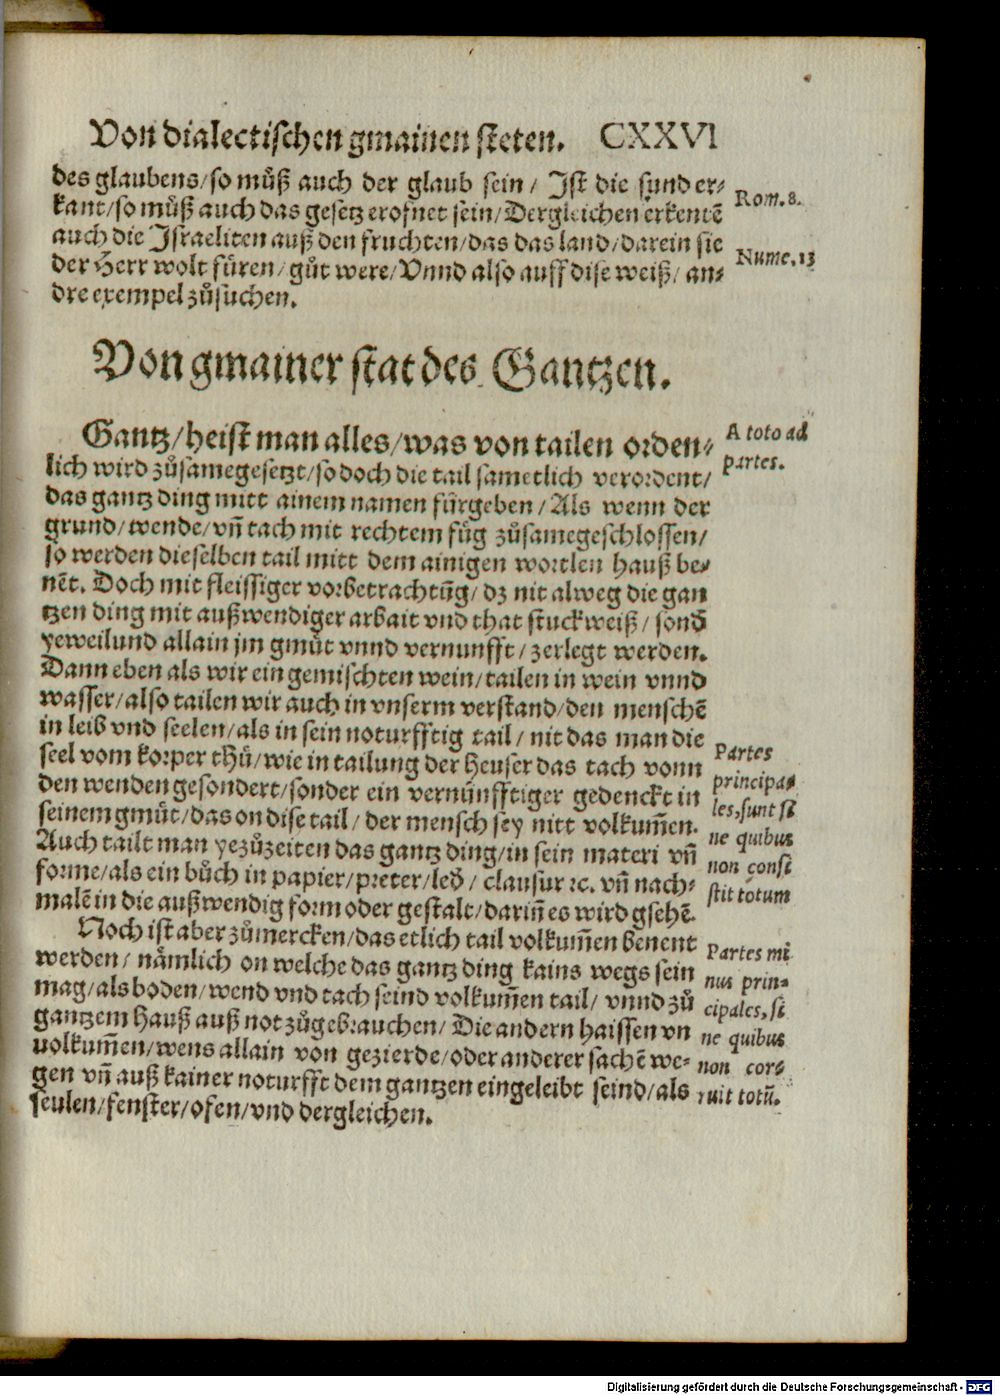 Von dialectischen gmainen steten. CXXVI
des glaubens/so můß auch der glaub sein/ Ist die sund er⸗
kant/so můß auch das gesetz erofnet sein/Dergleichen erkentē
Rom. 8.
auch die Israeliten auß den fruchten/das das land/darein sie
der Herr wolt füren/gůt were/Vnnd also auff dise weiß/ an⸗
Nume. 13
dre exempel zůsuchen.
Von gmainer stat des Gantzen.
Gantz/heist man alles/was von tailen orden⸗
A toto ad
partes.
lich wird zůsamegesetzt/so doch die tail sametlich verordent/
das gantz ding mitt ainem namen fürgeben/Als wenn der
grund/wende/vñ tach mit rechtem fůg zůsamegeschlossen/
so werden dieselben tail mitt dem ainigen wortlen hauß be⸗
nēt. Doch mit fleissiger vorbetrachtūg/dz nit alweg die gan
tzen ding mit außwendiger arbait vnd that stuckweiß/sonð
yeweilund allain jm gmůt vnnd vernunfft/zerlegt werden.
Dann eben als wir ein gemischten wein/tailen in wein vnnd
wasser/also tailen wir auch in vnserm verstand/den menschē
in leib vnd seelen/als in sein noturfftig tail/nit das man die
seel vom korper thů/wie in tailung der heuser das tach vonn
den wenden gesondert/sonder ein vernünfftiger gedenckt in
seinem gmüt/das on dise tail/der mensch sey nitt volkum̄en.
Auch tailt man yezůzeiten das gantz ding/in sein materi vñ
forme/als ein bůch in papier/preter/leð/clausur ꝛc. vñ nach⸗
malē in die außwendig form oder gestalt/dariñ es wird gsehē.
Partes
principa⸗
les, sunt si
ne quibus
non consi
stit totum
Noch ist aber zůmercken/das etlich tail volkum̄en benent
werden/nämlich on welche das gantz ding kains wegs sein
mag/als boden/wend vnd tach seind volkum̄en tail/vnnd zů
gantzem hauß auß not zůgebrauchen/Die andern haissen vn
uolkum̄en/wens allain von gezierde/oder anderer sachē we⸗
gen vñ auß kainer noturfft dem gantzen eingeleibt seind/als
seulen/fenster/ofen/vnd dergleichen.
Partes mi
nus prin⸗
cipales, si
ne quibus
non cor⸗
ruit totū.
Digitalisierung gefördert durch die Deutsche Forschungsgemeinschaft - DFG